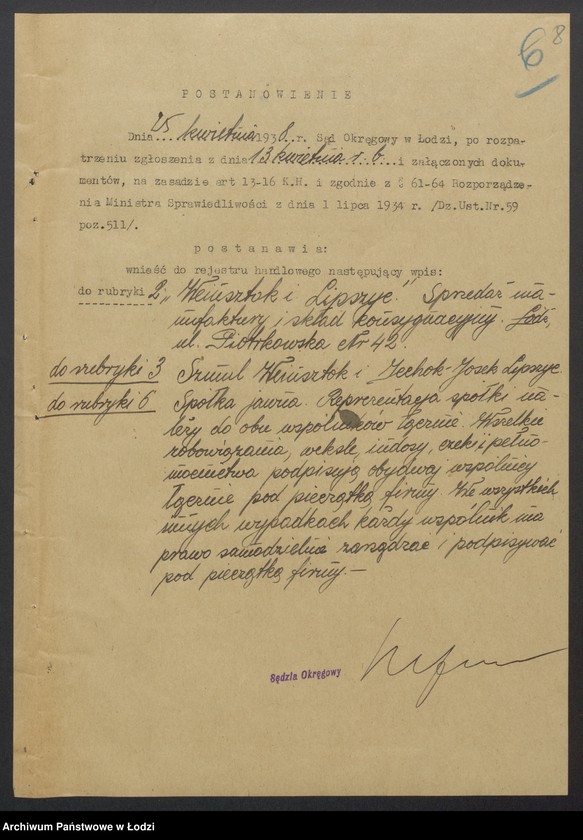 6 8
POSTANOWIENIE
Dnia 25 kwietnia 1938 r. Sąd Okręgowy w Łodzi, po rozpa-
trzeniu zgłoszenia z dnia 13 kwietnia r. b. i załączonych doku-
mentów, na zasadzie art 13-16 K.H. i zgodnie z § 61-64 Rozporządze-
nia Ministra Sprawiedliwości z dnia 1 lipca 1934 r. /Dz.Ust.Nr.59
poz.511/.
postanawia:
wnieść do rejestru handlowego następujący wpis:
do rubryki 2 „Weinsztok i Lipszyc." Sprzedaż ma-
nufaktury i skład konsygnacyjny. Łódź,
ul. Piotrkowska Nr 42.
do rubryki 3 Szmul Weinsztok i Zechok-Josek Lipszyc.
do rubryki 6 Spółka jawna. Reprezentacja spółki na-
leży do obu wspólników łącznie. Wszelkie
zobowiązania, weksle, indosy, czeki i pełno-
mocnictwa podpisują obydwaj wspólnicy
łącznie pod pieczątką firmy. We wszystkich
innych wypadkach każdy wspólnik ma
prawo samodzielnie zarządzać i podpisywać
pod pieczątką firmy.—
Sędzia Okręgowy
Archiwum Państwowe w Łodzi